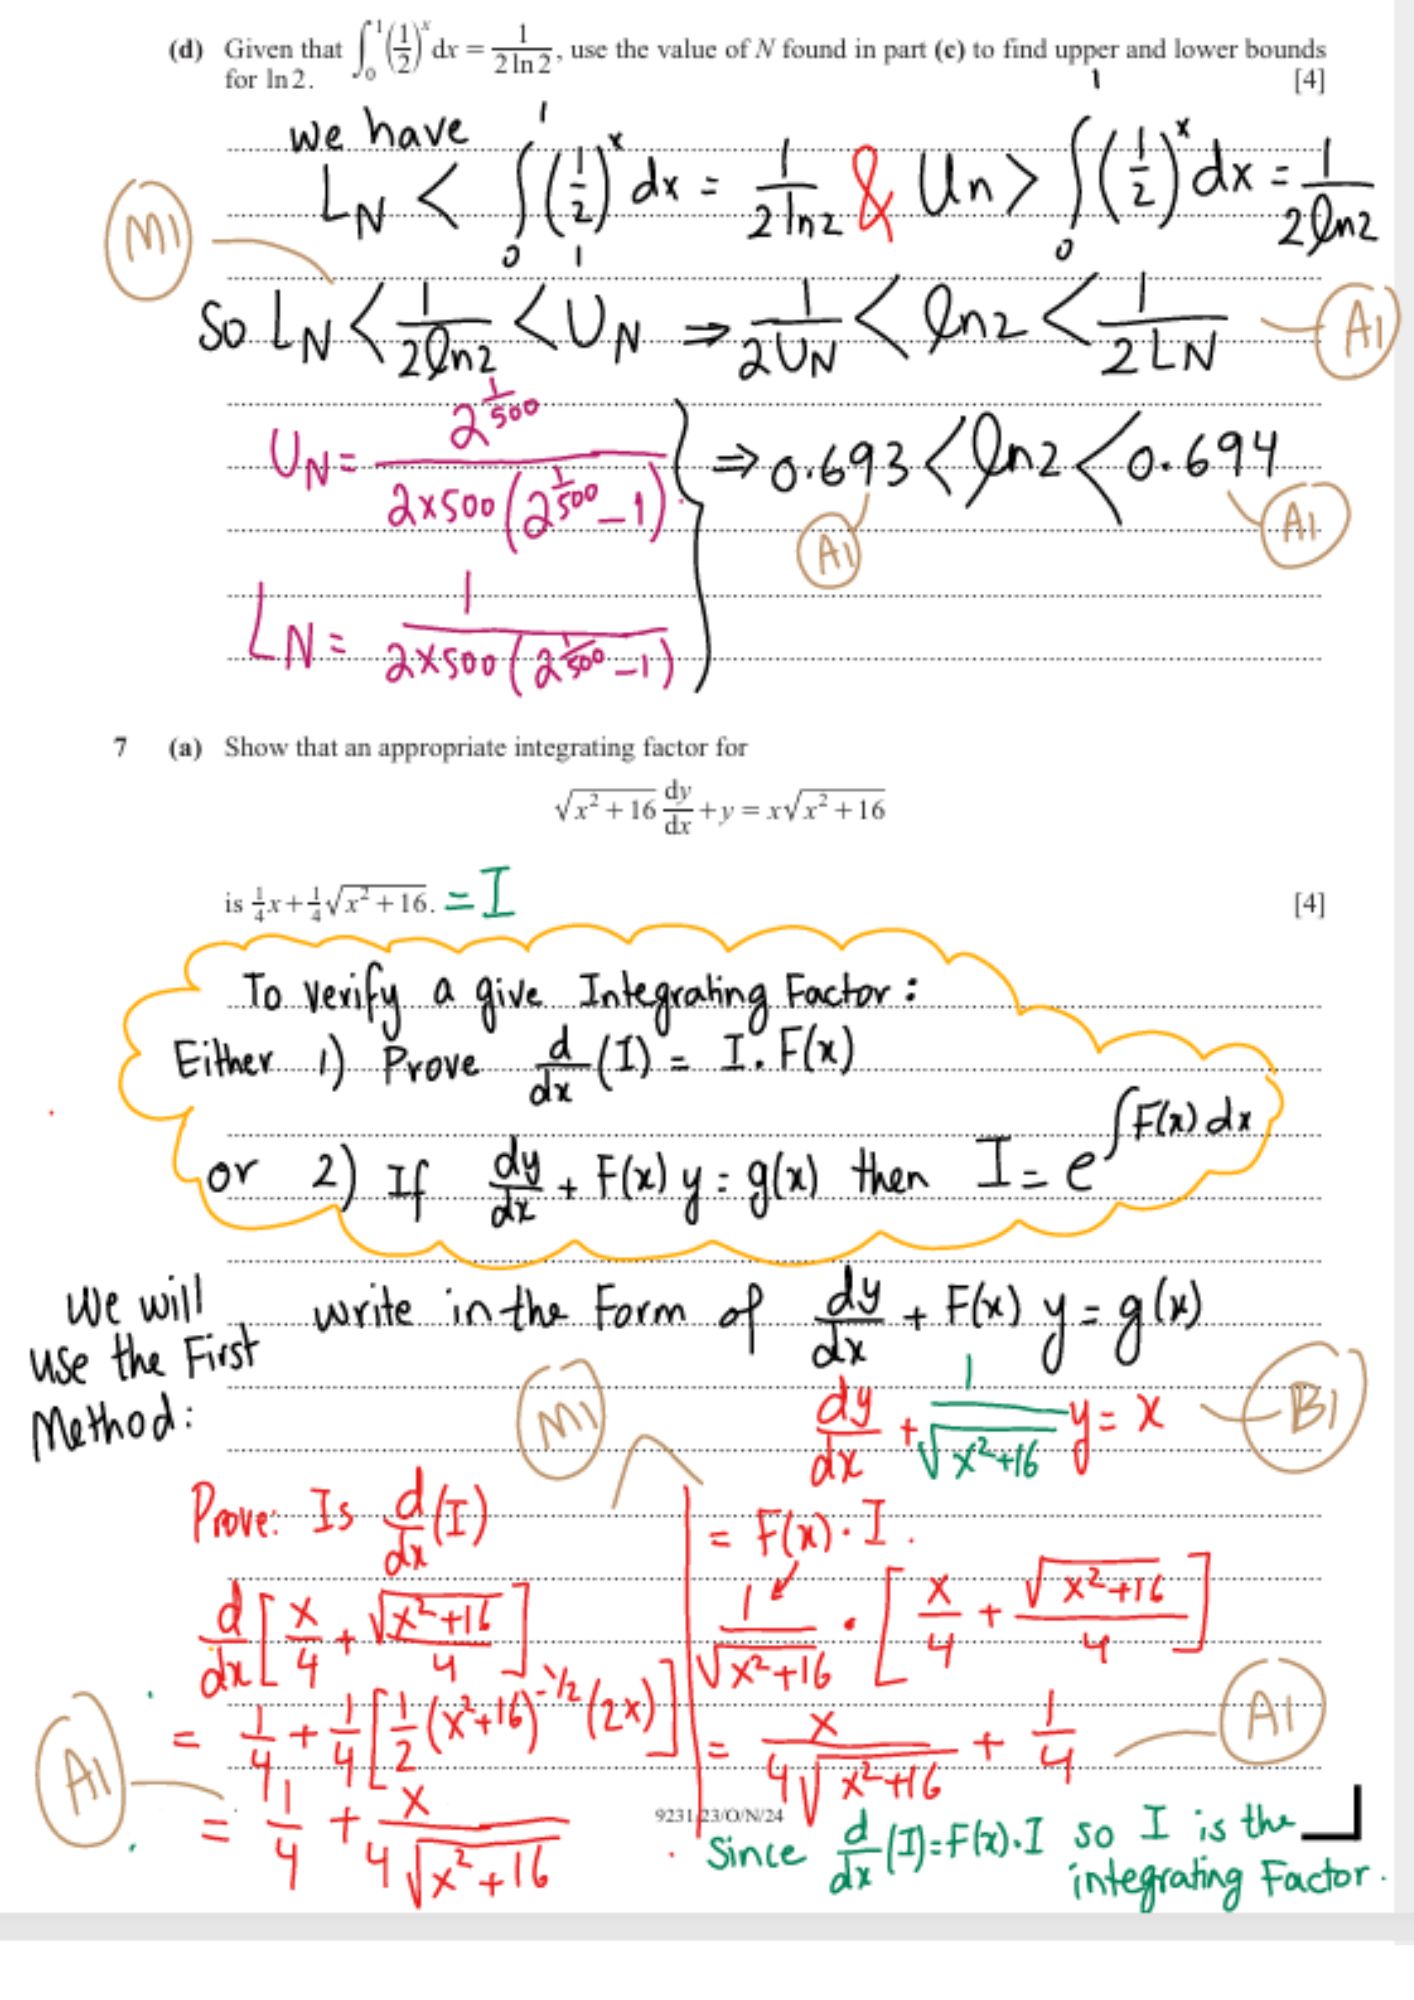 (d) Given that ∫₀¹ (1/2)ˣ dx = 1/(2 ln 2), use the value of N found in part (c) to find upper and lower bounds
for ln 2. [4]
we have
L_N < ∫₀¹ (1/2)ˣ dx = 1/(2 ln 2) & Un > ∫₀¹ (1/2)ˣ dx = 1/(2 ln 2)
M1
So L_N < 1/(2 ln 2) < U_N ⇒ 1/(2U_N) < ln 2 < 1/(2L_N) A1
U_N = 2^(1/500) / (2×500(2^(1/500) − 1)) ⇒ 0.693 < ln 2 < 0.694
A1 A1
L_N = 1 / (2×500(2^(1/500) − 1))
7 (a) Show that an appropriate integrating factor for
√(x² + 16) dy/dx + y = x√(x² + 16)
is ¼x + ¼√(x² + 16). = I [4]
To verify a give Integrating Factor:
Either 1) Prove d/dx (I) = I. F(x)
or 2) If dy/dx + F(x) y = g(x) then I = e^(∫F(x) dx)
We will
use the First
Method:
write in the Form of dy/dx + F(x) y = g(x)
M1
dy/dx + 1/√(x²+16) y = x B1
Prove: Is d/dx (I) = F(x) . I .
d/dx [x/4 + √(x²+16)/4] 1/√(x²+16) . [x/4 + √(x²+16)/4]
= 1/4 + 1/4 [1/2 (x²+16)^(-1/2) (2x)] = x/(4√(x²+16)) + 1/4 A1
A1
= 1/4 + x/(4√(x²+16))
9231/23/O/N/24
Since d/dx (I) = F(x).I so I is the
integrating Factor.